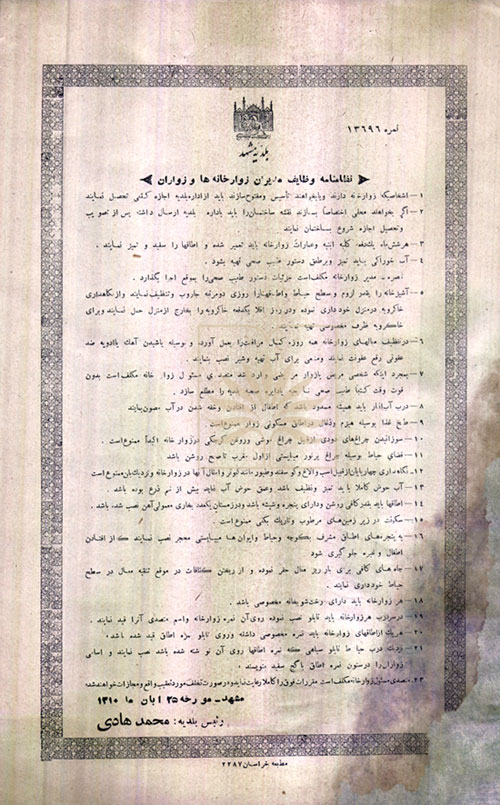 نمره ۱۳۶۹۶
بلدیه مشهد
نظامنامه وظایف مدیران زوارخانه ها و زواران
۱ – اشخاصیکه زوارخانه دارند ویابخواهند تأسیس ومفتوح سازند باید ازاداره بلدیه اجازه کشبی تحصیل نمایند
۲ – اگر بخواهند محلی اختصاصاً بسازند نقشه ساختمان را باید باداره بلدیه ارسال داشته پس از تصویب
وتحصیل اجازه شروع بساختمان نمایند
۳ – هرشش ماه یکدفعه کلیه ابنیه وعمارات زوارخانه باید تعمیر شده و اطاقها را سفید و تمیز نمایند .
۴ – آب خوراکی باید تمیز وبرطبق دستور طبیب صحی تهیه بشود .
تبصره – مدیر زوارخانه مکلف است جزئیات دستور طبیب صحی را بموقع اجرا بگذارد .
۵ – آشپزخانه را بقدر لزوم وسطح حیاط واطاقها را روزی دومرتبه جاروب وتنظیف نمایند وازنگاهداری
خاکروبه درمنزل خودداری نموده ودر روز اقلا یکدفعه خاکروبه را بخارج ازمنزل حمل نمایند وبرای
خاکروبه ظرف مخصوصی تهیه نمایند .
۶ – درتنظیف مبالهای زوارخانه همه روزه کمال مراقبت را بعمل آورد، و بوسیله پاشیدن آهک یاادویه ضد
عفونی رفع عفونت نمایند ومنبعی برای آب تهیه وشیر نصب نمایند .
۷ – بمجرد اینکه شخصی مریض یازوار مریضی وارد شد متصدی مسئول زوار خانه مکلف است بدون
فوت وقت کتباً طبیب صحی ناحیه یاداره صحیه بلدیه را مطلع سازد .
۸ – درب آب انبار باید همیشه مسدود باشد که اطفال از افتادن وخفه شدن در آب مصون بمانند
۹ – طبخ غذا بوسیله هیزم وذغال دراطاق مسکونی زوار ممنوع است
۱۰ – سوزانیدن چراغهای دودی ازقبیل چراغ موشی وروغن کرچکی درزوارخانه اکیداً ممنوع است .
۱۱ – فضای حیاط بوسیله چراغ پرنور میبایستی ازاول مغرب تاصبح روشن باشد
۱۲ – نگاه داری چهارپایان ازقبیل اسب والاغ وگوسفند وطیور مانند کبوتر وامثال آنها در زوارخانه ونزدیک بان ممنوع است
۱۳ – آب حوض کاملا باید تمیز ونظیف باشد وعمق حوض آب نباید بیش از نیم ذرع بوده باشد .
۱۴ – اطاقها باید بقدر کافی روشن ودارای پنجره وشیشه باشد ودرزمستان یکعدد بخاری معمولی آهن نصب شده باشد .
۱۵ – سکونت در زیر زمین های مرطوب وتاریک بکلی ممنوع است
۱۶ – به پنجره های اطاق مشرف بکوچه وحیاط وایوان ها میبایستی محجر نصب نمایند که از افتادن
اطفال و غیره جلوگیری شود
۱۷ – چاه های کافی برای بار ریز مبال حفر نموده و از ریختن کثافات در موقع تنقیه مبال در سطح
حیاط خودداری نمایند .
۱۸ – هر زوارخانه باید دارای رخت شویخانه مخصوصی باشد .
۱۹ – دردرب هرزوارخانه باید تابلو نصب نموده روی آن نمره زوارخانه واسم متصدی آنرا قید نمایند .
۲۰ – هریک ازاطاقهای زوارخانه باید نمره مخصوصی داشته وروی تابلو جزء اطاق قید شده باشد .
۲۱ – نزدیک درب حیاط تابلو سیاهی که نمره اطاقها روی آن نوشته شده باشد نصب نمایند و اسامی
زوار را درستون نمره اطاق با گچ سفید بنویسند .
۲۲ – متصدی مسئول زوارخانه مکلف است مقررات فوق را کاملا رعایت نماید ودرصورت تخلف مورد تعقیب واقع ومجازات خواهند شد
مشهد – مورخه ۲۵ آبان ماه ۱۳۱۰
رئیس بلدیه : محمد هادی
مطبعه خراسان ۲۲۸۷